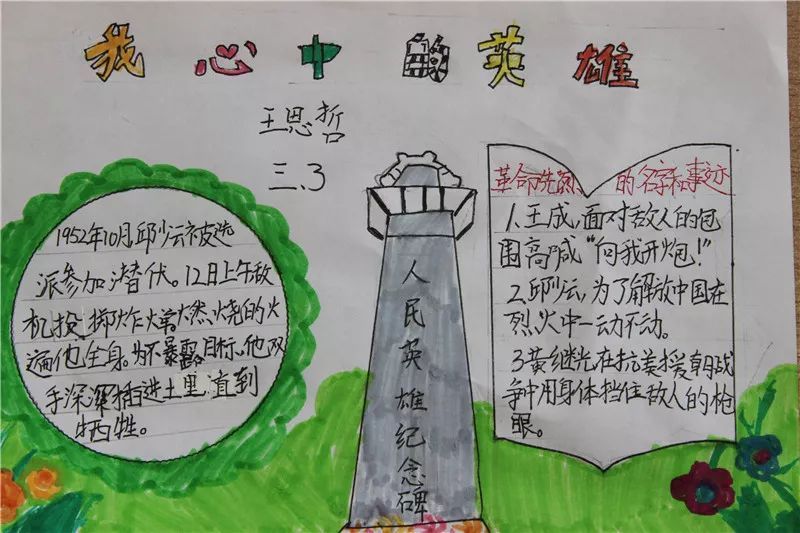 我心中的英雄
王思哲
三.3
1952年10月邱少云被选
派参加潜伏。12日上午敌
机投掷炸弹。燃烧的火
遍他全身。为不暴露目标,他双
手深深插进土里,直到
牺牲。
人民英雄纪念碑
革命先烈的名字和事迹
1.王成,面对敌人的包
围高喊“向我开炮!”
2.邱少云,为了解放中国在
烈火中一动不动。
3.黄继光在抗美援朝战
争中用身体挡住敌人的枪
眼。